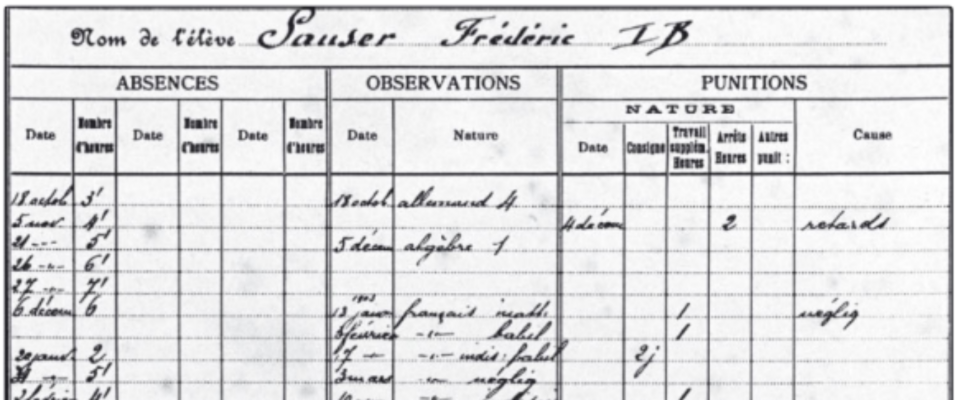 Nom de l'élève Sauser Frédéric I B
ABSENCES OBSERVATIONS PUNITIONS
NATURE
Date Nombre d'heures Date Nombre d'heures Date Nombre d'heures Date Nature Date Consigne Travail supplém. Heures Arrêts Heures Autres punit: Cause
18 octob 3' 18 octob allemand 4
5 nov. 4' 4 décem 2 retards
21 -"- 5' 5 décem algèbre 1
26 -"- 6'
27 -"- 7'
6 décem 6 13 janv français inatt. 1 néglig
3 février -"- babil 1
20 janv. 2 17 -"- -"- indis: babil 2j
-"- 5' 3 mars -"- néglig
4' 1